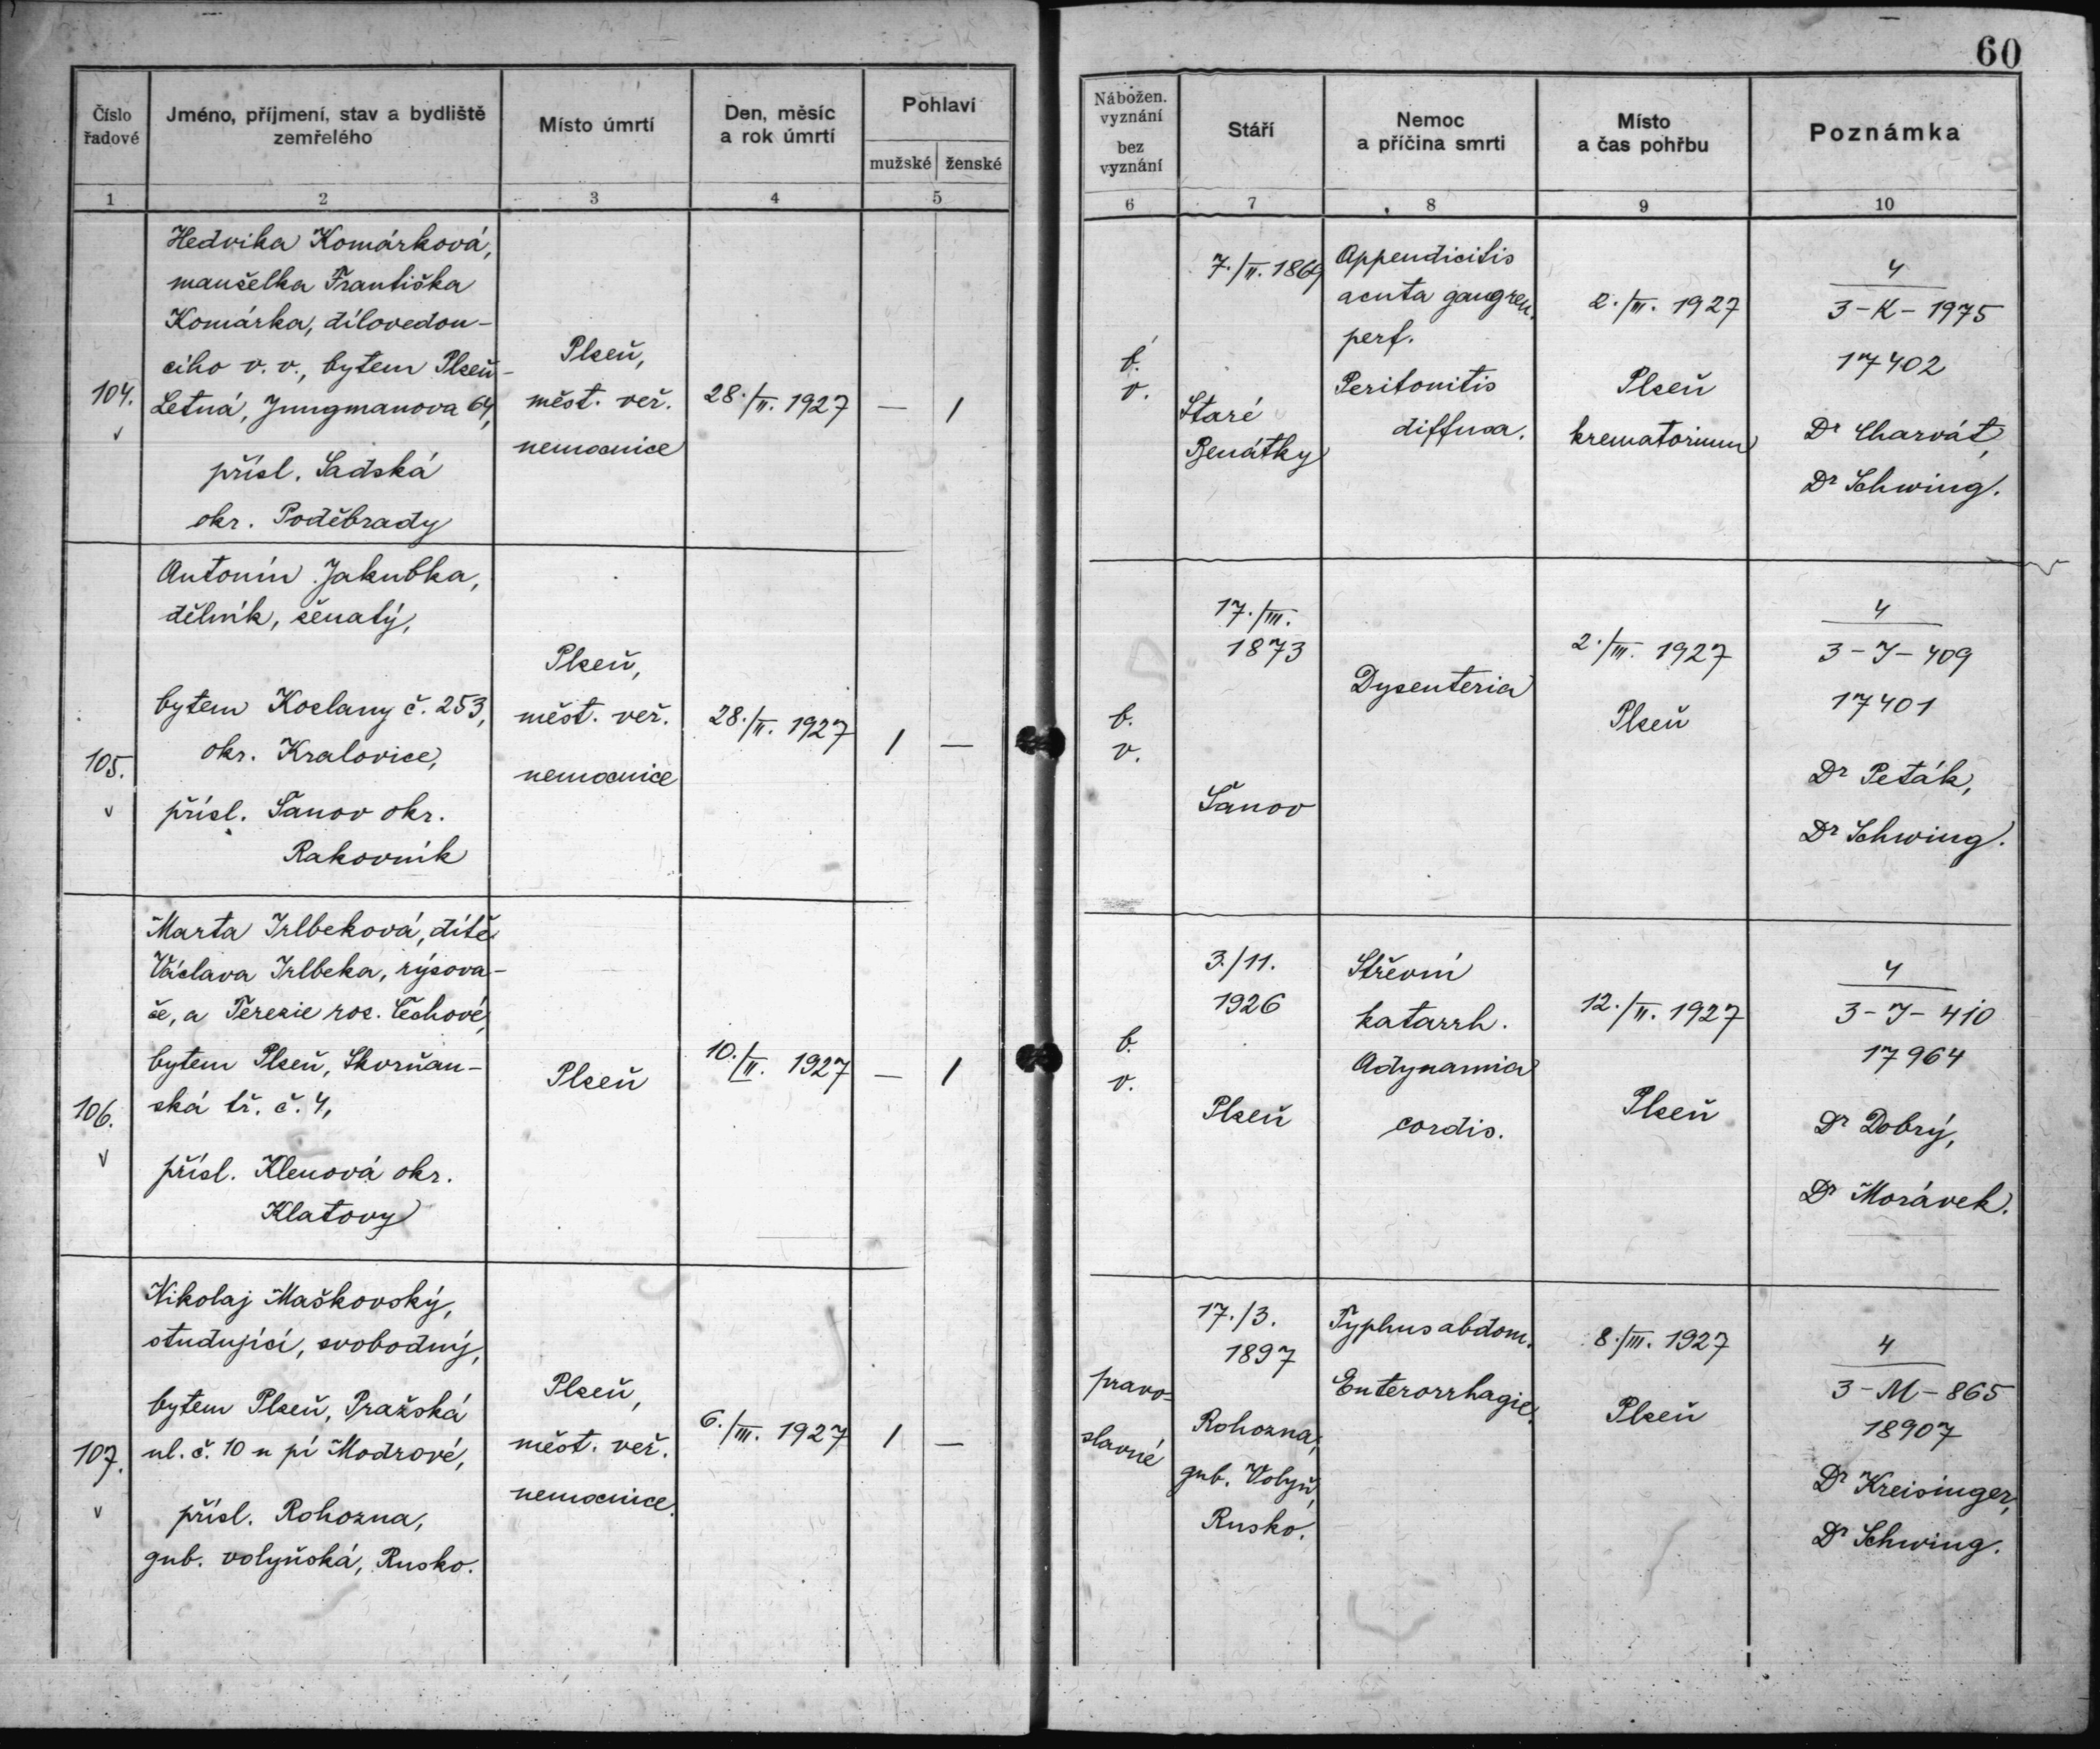 60
Číslo řadové
Jméno, příjmení, stav a bydliště zemřelého
Místo úmrtí
Den, měsíc a rok úmrtí
Pohlaví
mužské ženské
Nábožen. vyznání
bez vyznání
Stáří
Nemoc a příčina smrti
Místo a čas pohřbu
Poznámka
1 2 3 4 5 6 7 8 9 10
104.
Hedvika Komárková,
manželka Františka
Komárka, dílovedou-
cího v. v., bytem Plzeň-
Letná, Jungmanova 64,
přísl. Sadská
okr. Poděbrady
Plzeň,
měst. veř.
nemocnice
28./II. 1927
— 1
b.
v.
7./II. 1869
Staré
Benátky
Appendicitis
acuta gangren.
perf.
Peritonitis
diffusa.
2./III. 1927
Plzeň
krematorium
4
3-K-1975
17402
Dr Charvát,
Dr Schwing.
105.
Antonín Jakubka,
dělník, ženatý,
bytem Kozlany č. 253,
okr. Kralovice,
přísl. Šanov okr.
Rakovník
Plzeň,
měst. veř.
nemocnice
28./II. 1927
1 —
b.
v.
17./III.
1873
Šanov
Dysenteria
2./III. 1927
Plzeň
4
3-J-409
17401
Dr Peták,
Dr Schwing.
106.
Marta Irlbeková, dítě
Václava Irlbeka, rýsova-
če, a Terezie roz. Čechové,
bytem Plzeň, Skvrňan-
ská tř. č. 4,
přísl. Klenová okr.
Klatovy
Plzeň
10./II. 1927
— 1
b.
v.
3./11.
1926
Plzeň
Střevní
katarrh.
Adynamia
cordis.
12./II. 1927
Plzeň
4
3-J-410
17964
Dr Dobrý,
Dr Morávek.
107.
Nikolaj Maškovský,
studující, svobodný,
bytem Plzeň, Pražská
ul. č. 10 u pí Modrové,
přísl. Rohozna,
gub. volyňská, Rusko.
Plzeň,
měst. veř.
nemocnice.
6./III. 1927
1 —
pravo-
slavné
17./3.
1897
Rohozna,
gub. Volyň,
Rusko.
Typhus abdom.
Enterorrhagie.
8./III. 1927
Plzeň
4
3-M-865
18907
Dr Kreisinger,
Dr Schwing.